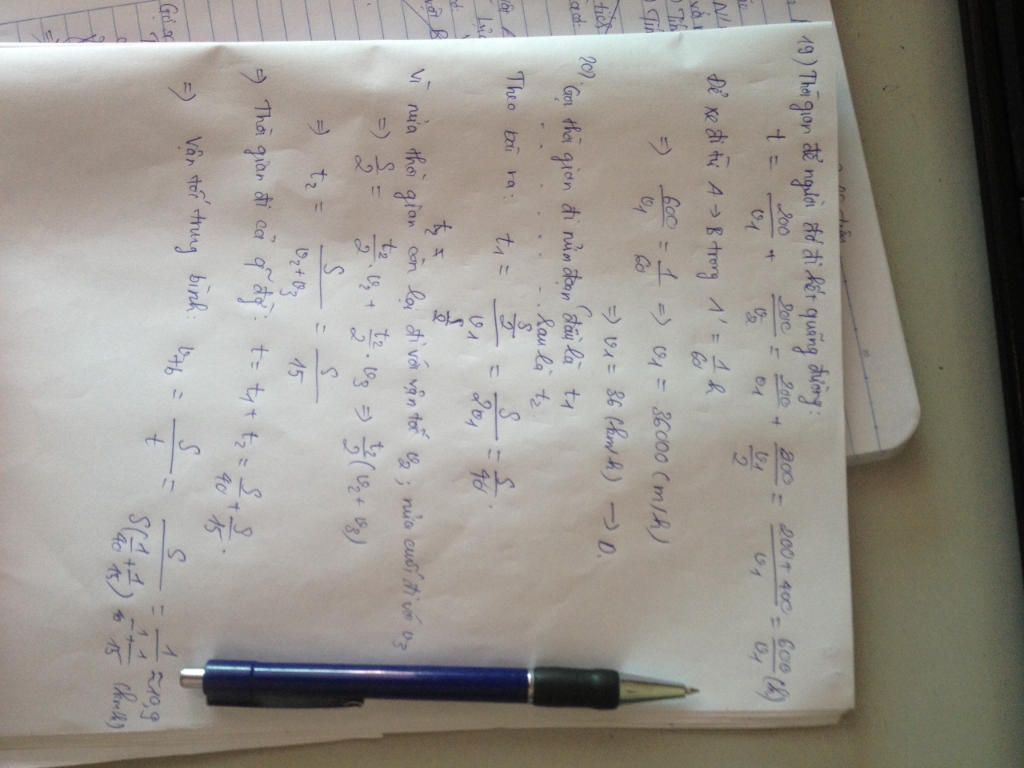 19) Thời gian để người đó đi hết quãng đường:
t = 200/v1 + 200/v2 = 200/v1 + 200/(v1/2) = (200+400)/v1 = 600/v1 (h)
Để xe đi từ A → B trong 1' = 1/60 h
=> 600/v1 = 1/60 => v1 = 36000 (m/h)
=> v1 = 36 (km/h) → D.
20). Gọi thời gian đi nửa đoạn đầu là t1
sau là t2.
Theo bài ra: t1 = (S/2)/v1 = S/2v1 = S/40.
t2 =
Vì nửa thời gian còn lại đi với vận tốc v2; nửa cuối đi với v3
=> S/2 = t2/2 . v2 + t2/2 . v3 => t2/2 (v2 + v3)
=> t2 = S/(v2+v3) = S/15
=> Thời gian đi cả qđg: t = t1 + t2 = S/40 + S/15.
=> Vận tốc trung bình: vtb = S/t = S/(S(1/40 + 1/15)) = 1/(1/40 + 1/15) ≈ 10,9 (km/h)